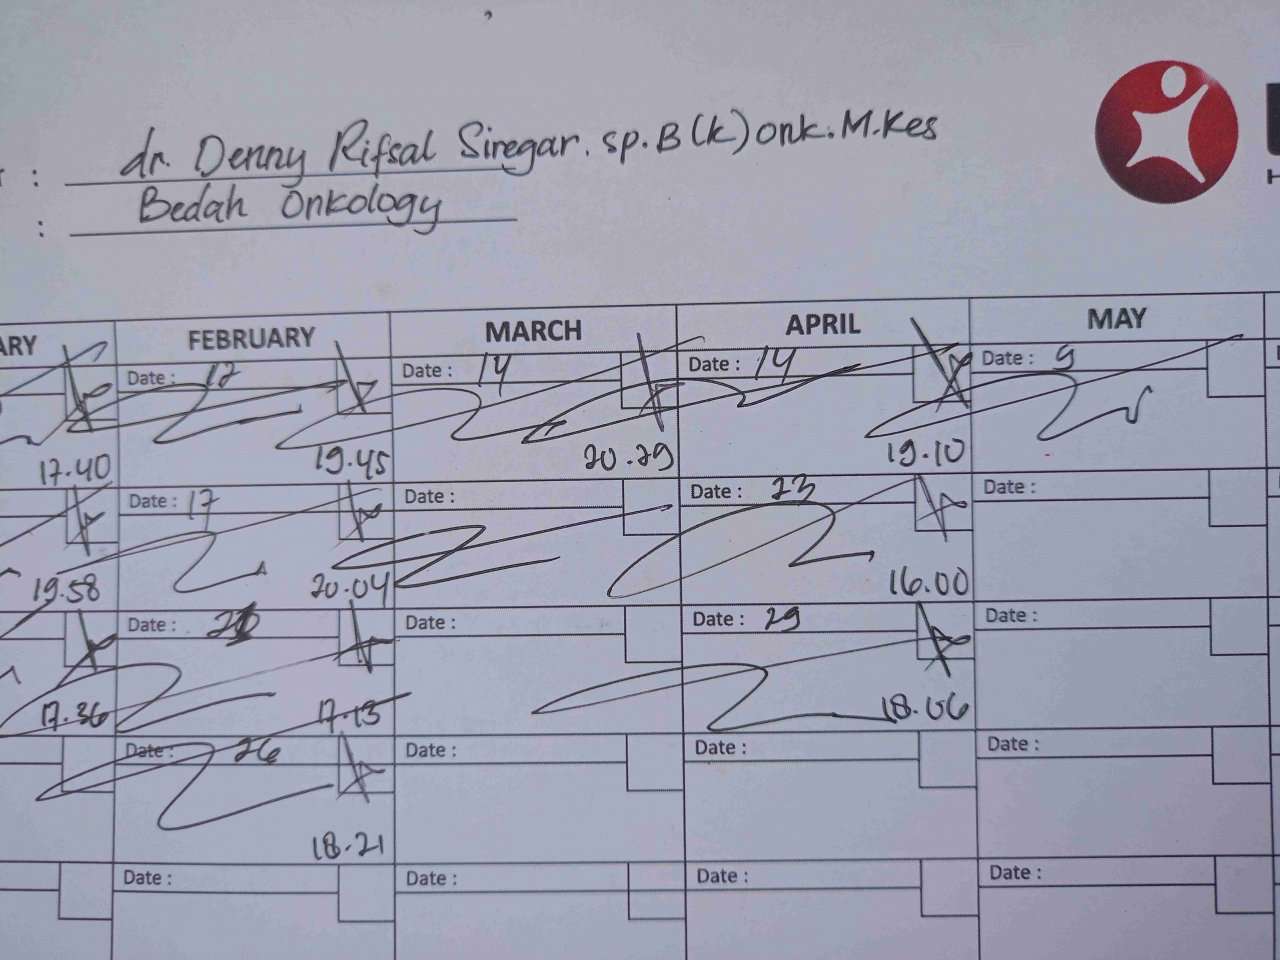 : dr. Denny Rifsal Siregar. sp.B(k)onk.M.Kes
: Bedah Onkology
ARY FEBRUARY MARCH APRIL MAY
Date : 12 Date : 14 Date : 14 Date : 9
17.40 19.45 20.29 19.10
Date : 17 Date : Date : 23 Date :
19.58 20.04 16.00
Date : Date : Date : 29 Date :
17.36 17.13 18.06
Date : 26 Date : Date : Date :
18.21
Date : Date : Date : Date :